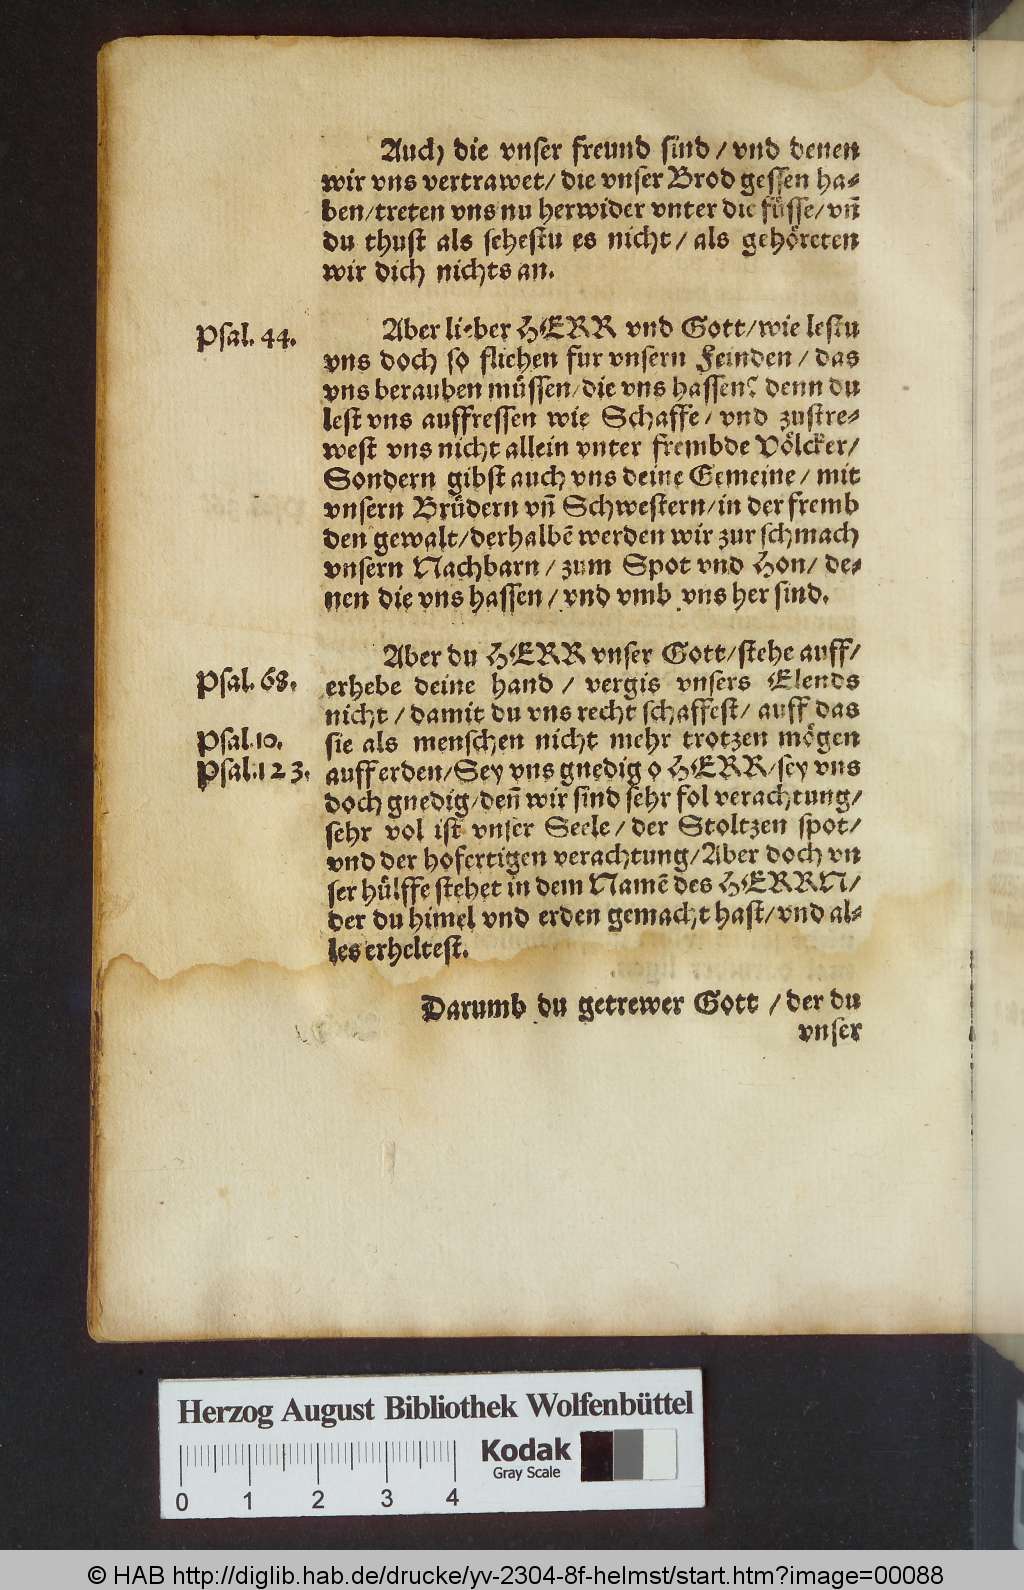 Auch die vnser freund sind / vnd denen
wir vns vertrawet / die vnser Brod gessen ha-
ben / treten vns nu herwider vnter die füsse / vn̄
du thust als sehestu es nicht / als gehöreten
wir dich nichts an.
Psal. 44.
Aber lieber HERR vnd Gott / wie lestu
vns doch so fliehen fur vnsern Feinden / das
vns berauben müssen / die vns hassen? denn du
lest vns auffressen wie Schaffe / vnd zustre-
west vns nicht allein vnter frembde Völcker /
Sondern gibst auch vns deine Gemeine / mit
vnsern Brüdern vn̄ Schwestern / in der fremb
den gewalt / derhalbē werden wir zur schmach
vnsern Nachbarn / zum Spot vnd Hon / de-
nen die vns hassen / vnd vmb vns her sind.
Aber du HERR vnser Gott / stehe auff /
Psal. 68.
erhebe deine hand / vergis vnsers Elends
nicht / damit du vns recht schaffest / auff das
Psal. 10.
sie als menschen nicht mehr trotzen mögen
Psal. 123.
auff erden / Sey vns gnedig o HERR / sey vns
doch gnedig / den̄ wir sind sehr fol verachtung /
sehr vol ist vnser Seele / der Stoltzen spot /
vnd der hofertigen verachtung / Aber doch vn
ser hülffe stehet in dem Namē des HERRN /
der du himel vnd erden gemacht hast / vnd al-
les erheltest.
Darumb du getrewer Gott / der du
vnser
Herzog August Bibliothek Wolfenbüttel
Kodak
Gray Scale
0 1 2 3 4
© HAB http://diglib.hab.de/drucke/yv-2304-8f-helmst/start.htm?image=00088